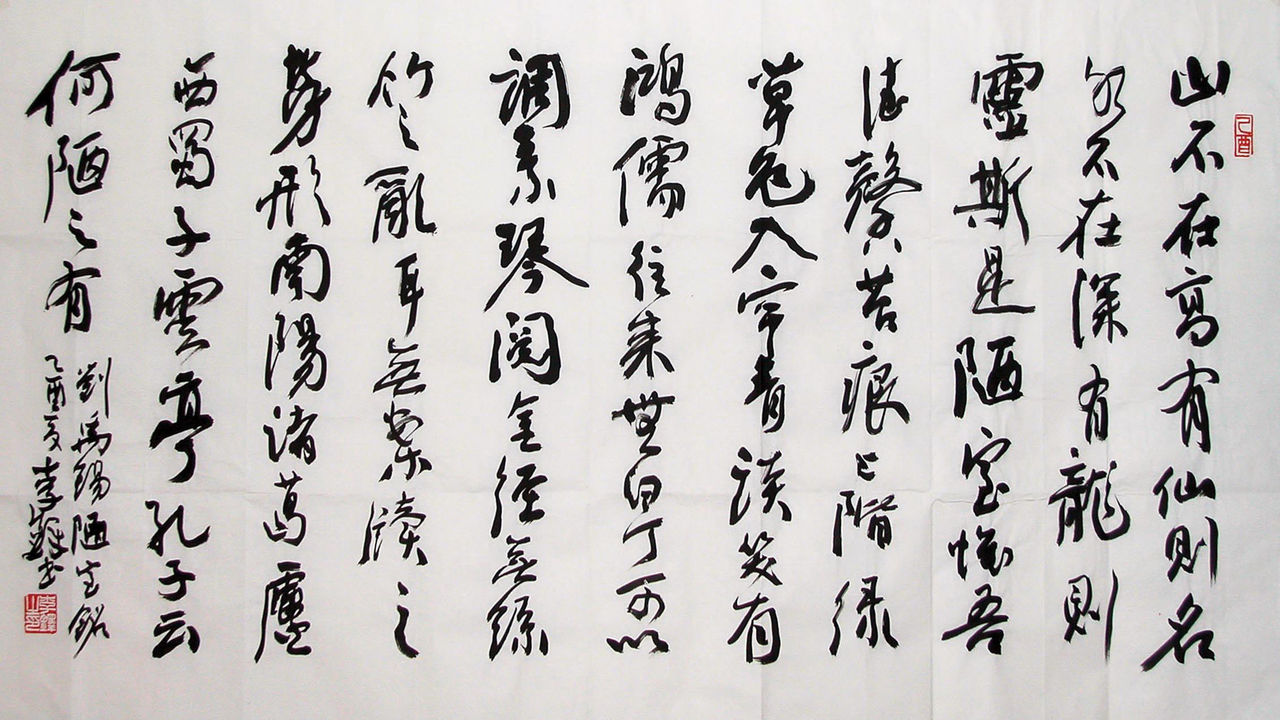 乙酉
山不在高有仙則名
水不在深有龍則
靈斯是陋室惟吾
德馨苔痕上階綠
草色入帘青談笑有
鴻儒往來無白丁可以
調素琴閱金經無絲
竹之亂耳無案牘之
勞形南陽諸葛廬
西蜀子雲亭孔子云
何陋之有
劉禹錫陋室銘
乙酉夏李書